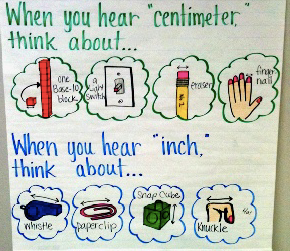 When you hear "centimeter,"
think about...
one
Base-10
block
a
light
switch
eraser
finger
nail
When you hear "inch,"
think about...
whistle
paperclip
Snap Cube
Knuckle